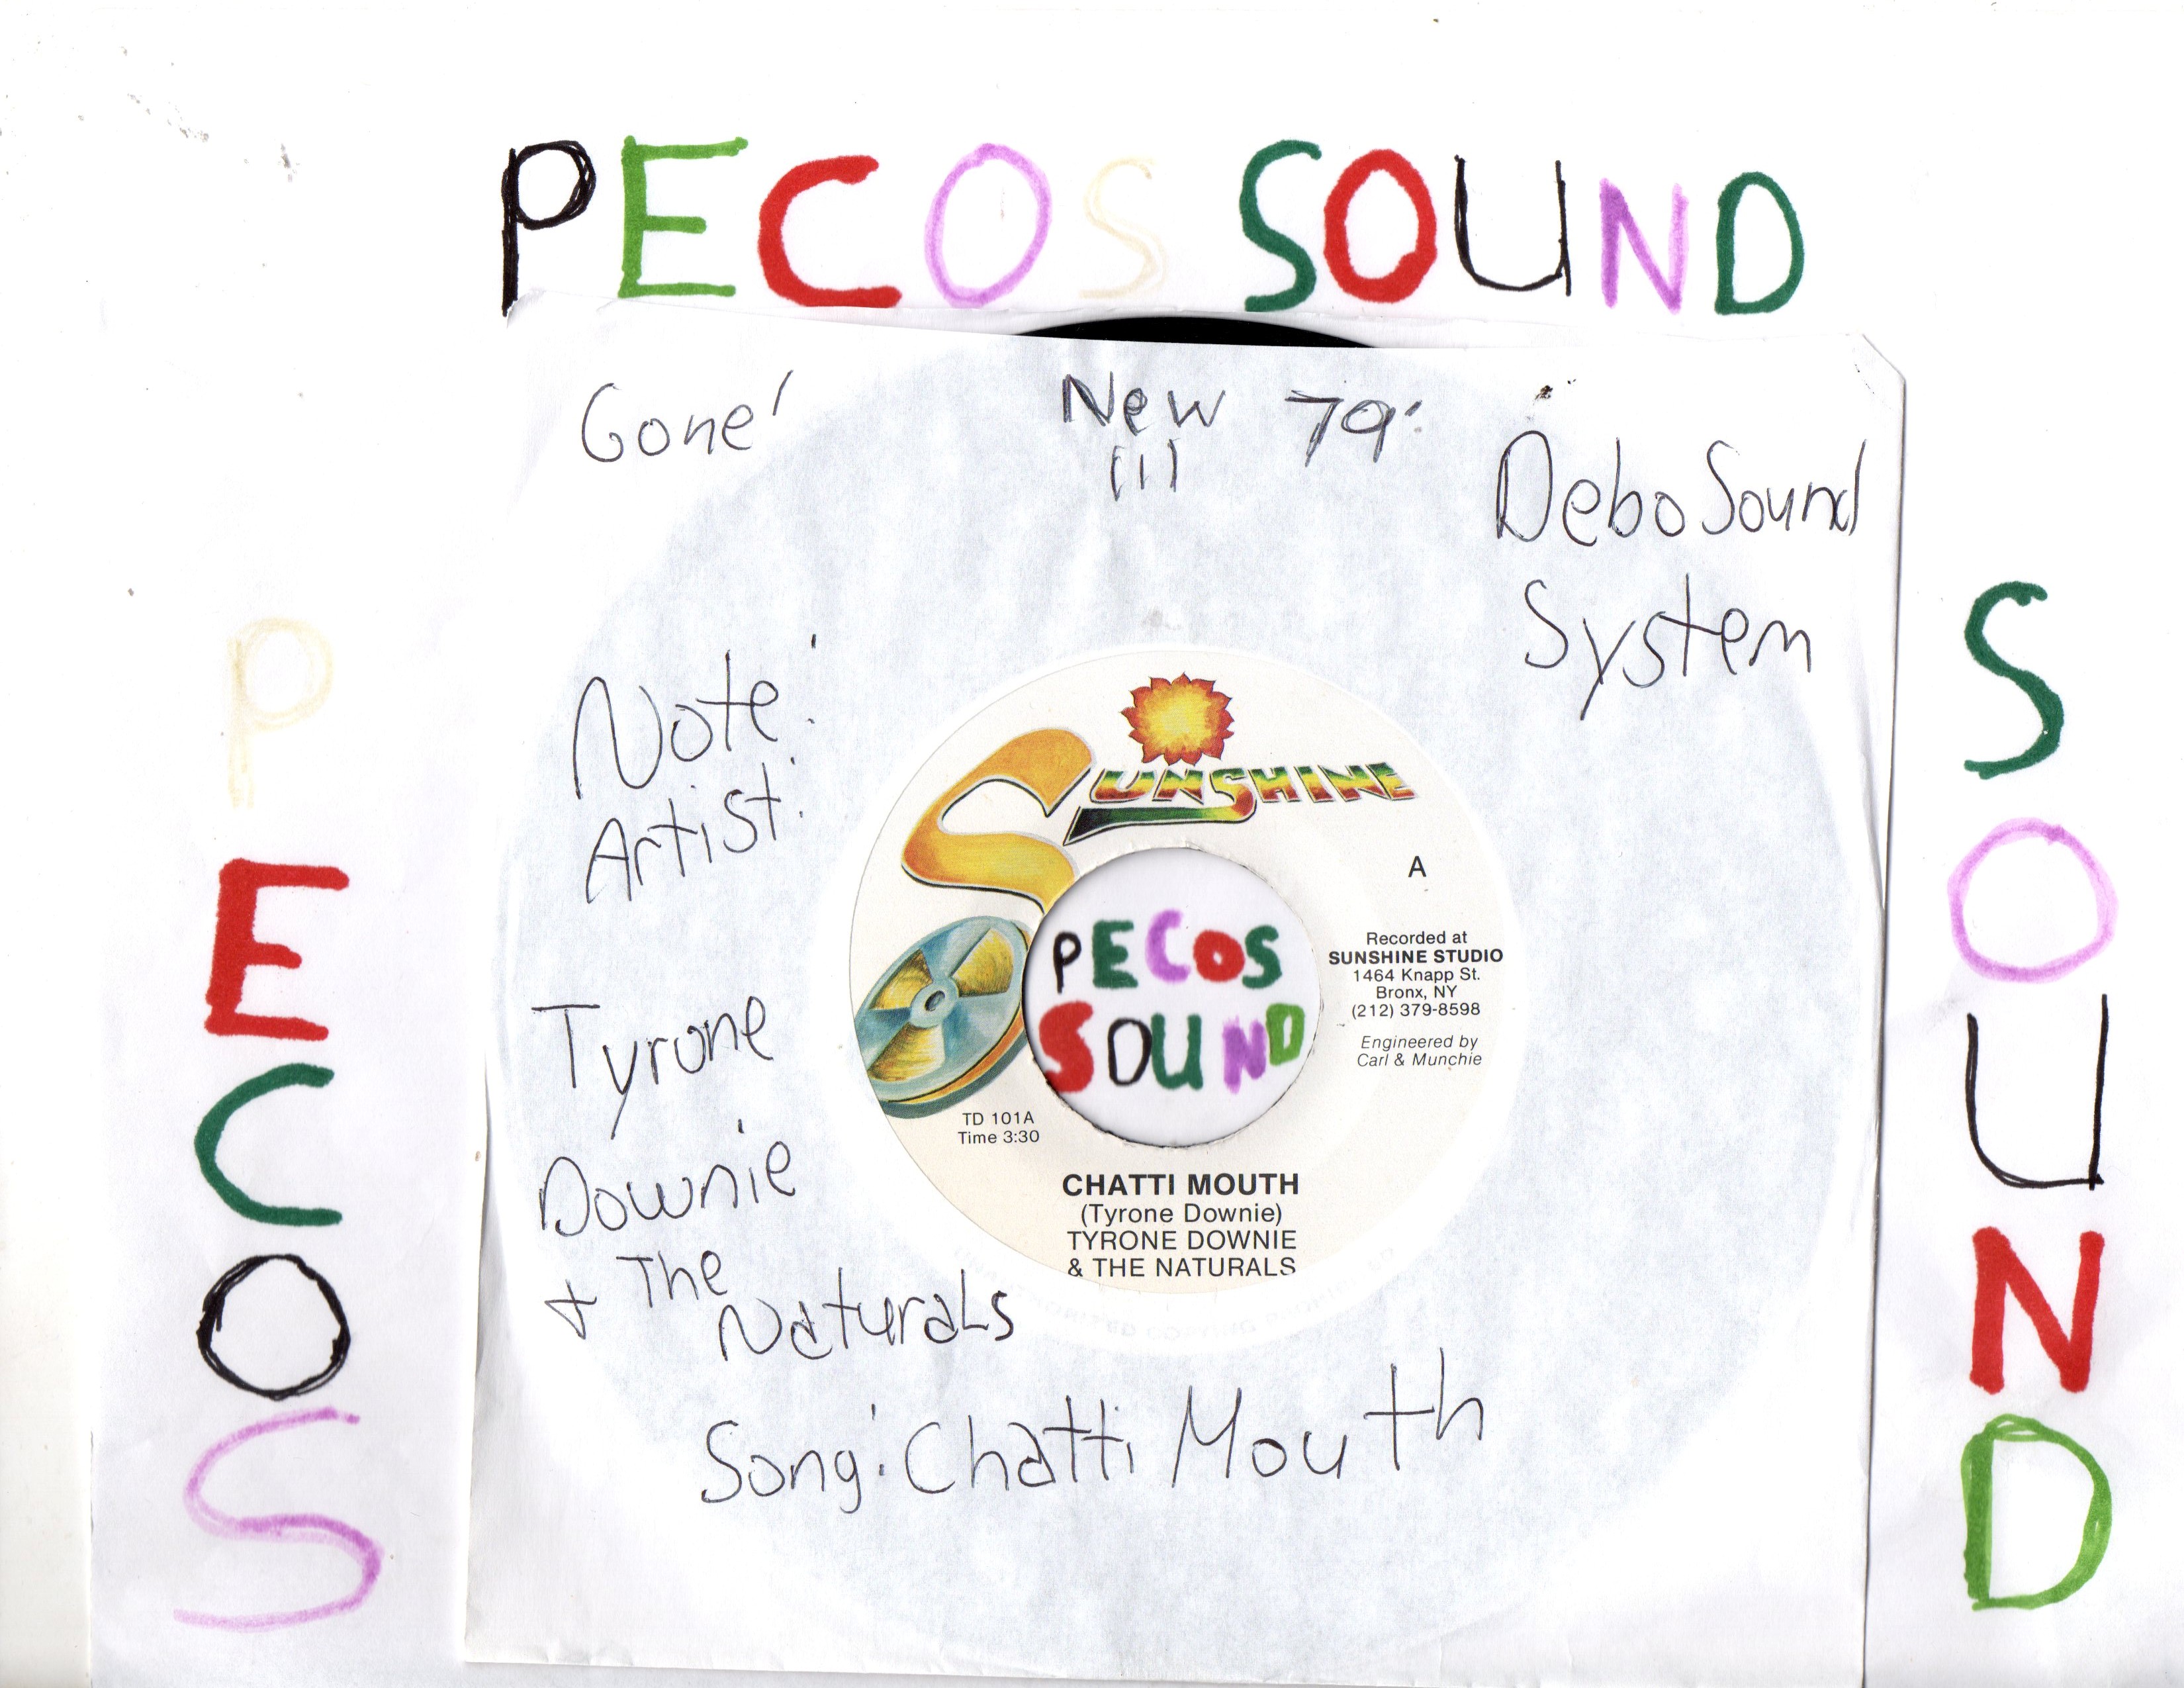 PECOS SOUND
Gone'
New 79'
(1)
Debo Sound
System
Note:
Artist:
Tyrone
Downie
+ The
Naturals
Song: Chatti Mouth
PECOS
SOUND
SUNSHINE
A
Recorded at
SUNSHINE STUDIO
1464 Knapp St.
Bronx, NY
(212) 379-8598
Engineered by
Carl & Munchie
PECOS
SOUND
TD 101A
Time 3:30
CHATTI MOUTH
(Tyrone Downie)
TYRONE DOWNIE
& THE NATURALS